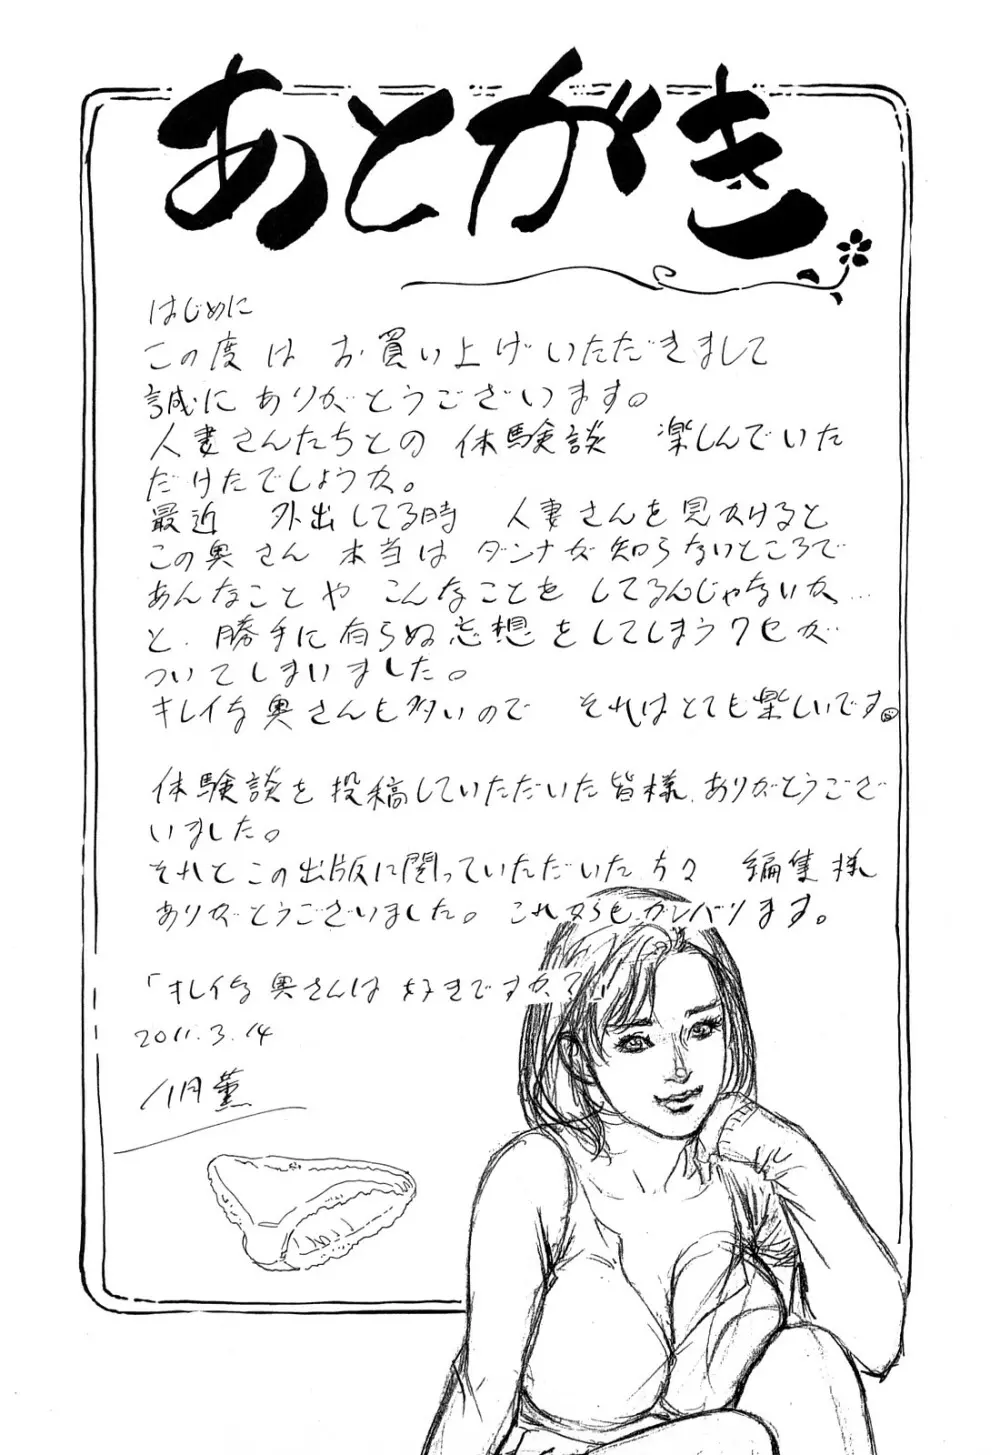 あとがき
はじめに
この度は お買い上げいただきまして
誠に ありがとうございます。
人妻さんたちとの 体験談 楽しんでいた
だけたでしょうか。
最近 外出してる時 人妻さんを見かけると
この奥さん 本当は ダンナが知らないところで
あんなことや こんなことを してるんじゃないか…
と、勝手に有らぬ忘想をしてしまうクセが
ついてしまいました。
キレイな奥さんも多いので それはとても楽しいです。
体験談を投稿していただいた皆様、ありがとうござ
いました。
それとこの出版に関っていただいた方々 編集様
ありがとうございました。これからもガンバります。
「キレイな奥さんは 好きですか？」
2011.3.14
八月薫